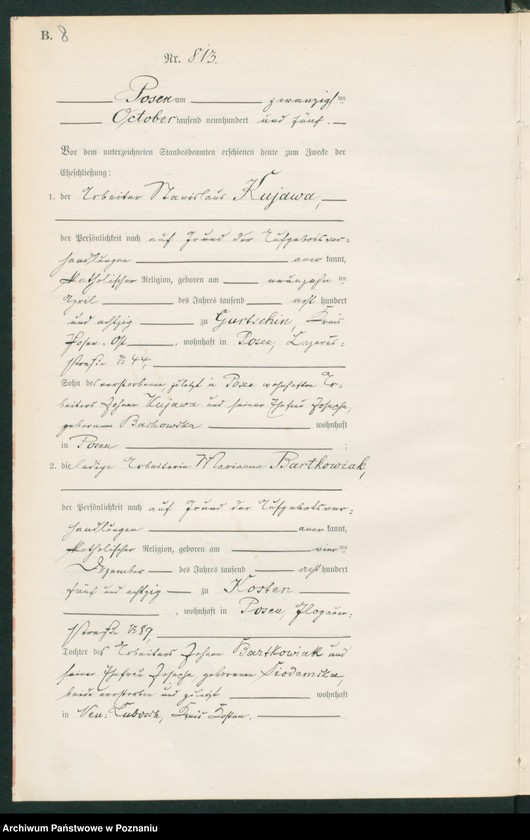 B. 8
Nr. 813.
Posen am zwanzigsten
October tausend neunhundert und fünf.
Vor dem unterzeichneten Standesbeamten erschienen heute zum Zwecke der
Eheschließung:
1. der Arbeiter Stanislaus Kujawa,
der Persönlichkeit nach auf Grund der Aufgebotsver-
handlungen anerkannt,
katholischer Religion, geboren am neunzehnten
April des Jahres tausend acht hundert
und achtzig zu Gurtschin, Kreis
Posen-Ost, wohnhaft in Posen, Lazarus-
straße № 44,
Sohn des verstorbenen zuletzt in Posen wohnhaften Ar-
beiters Johann Kujawa und seiner Ehefrau Josepha,
geborenen wohnhaft
in Posen ;
2. die ledige Arbeiterin Marianna Bartkowiak,
der Persönlichkeit nach auf Grund der Aufgebotsver-
handlungen anerkannt,
katholischer Religion, geboren am vierten
Dezember des Jahres tausend acht hundert
fünf und achtzig zu Kosten
, wohnhaft in Posen, Glogauer-
straße № 87,
Tochter des Arbeiters Johann Bartkowiak und
seiner Ehefrau Josepha, geborenen
beide verstorben und zuletzt wohnhaft
in Neu- Kreis Kosten.
Archiwum Państwowe w Poznaniu